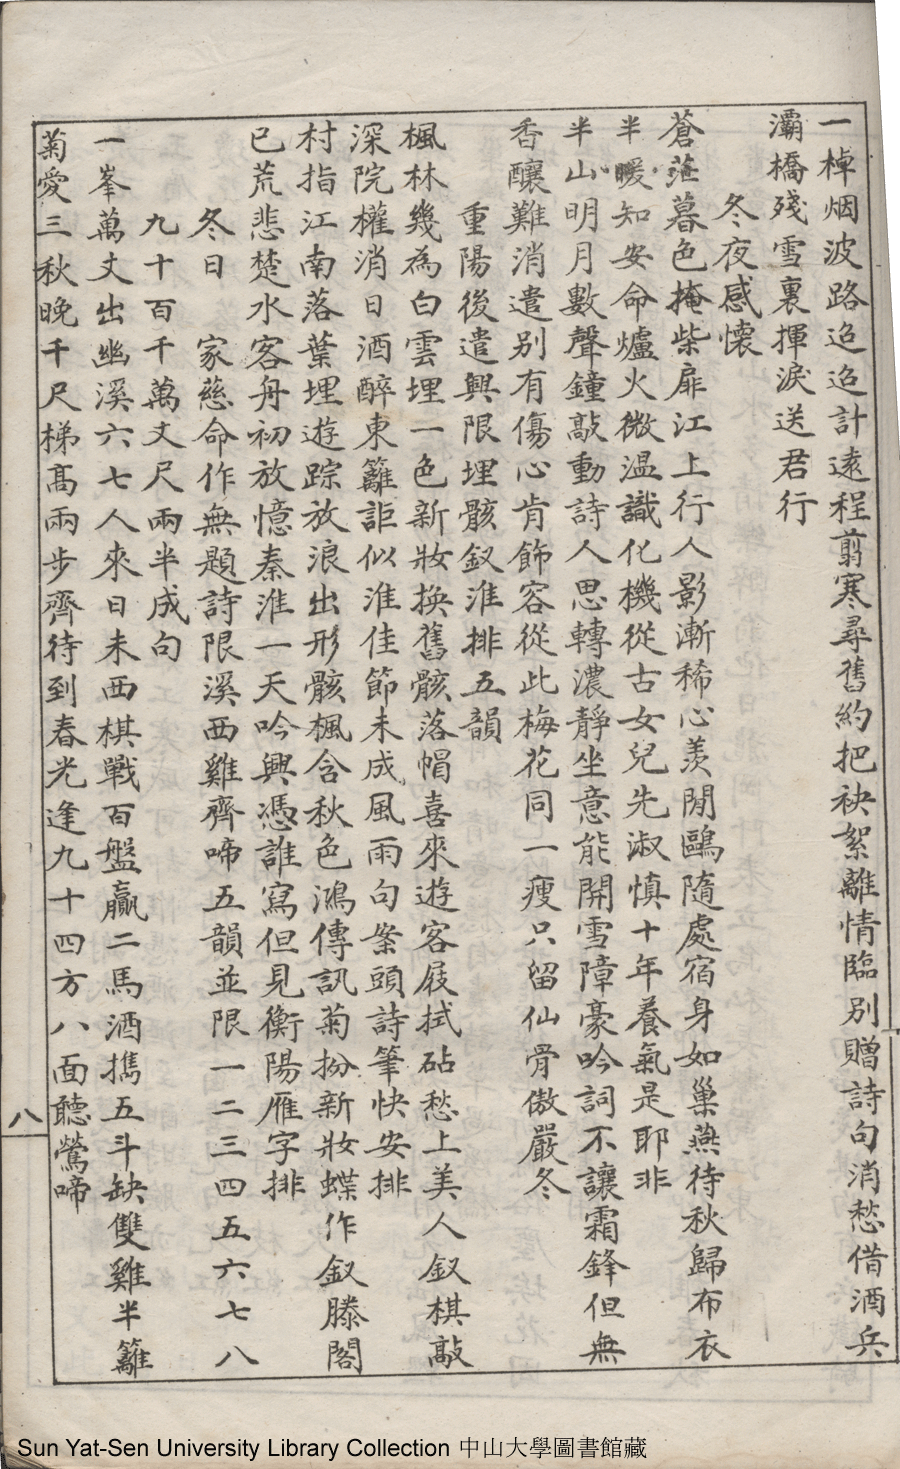 一棹烟波路迢迢計遠程剪寒尋舊約把袂絮離情臨别贈詩句消愁借酒兵
灞橋殘雪裏揮淚送君行
冬夜感懷
蒼茫暮色掩柴扉江上行人影漸稀心羨閒鷗隨處宿身如巢燕待秋歸布衣
半暖知安命爐火微温識化機從古女兒先淑慎十年養氣是耶非
半山明月數聲鐘敲動詩人思轉濃靜坐意能開雪障豪吟詞不讓霜鋒但無
香釀難消遣别有傷心肯飾容從此梅花同一瘦只留仙骨傲嚴冬
重陽後遣興限埋骸釵淮排五韻
楓林幾為白雲埋一色新妝换舊骸落帽喜來遊客屐拭砧愁上美人釵棋敲
深院權消日酒醉東籬詎似淮佳節未成風雨句案頭詩筆快安排
村指江南落葉埋遊踪放浪出形骸楓含秋色鴻傳訊菊扮新妝蝶作釵滕閣
已荒悲楚水客舟初放憶秦淮一天吟興憑誰寫但見衡陽雁字排
冬日　家慈命作無題詩限溪西雞齊啼五韻並限一二三四五六七八
九十百千萬丈尺兩半成句
一峯萬丈出幽溪六七人來日未西棋戰百盤贏二馬酒攜五斗缺雙雞半籬
菊愛三秋晚千尺梯高兩步齊待到春光逢九十四方八面聽鶯啼
八
Sun Yat-Sen University Library Collection 中山大學圖書館藏